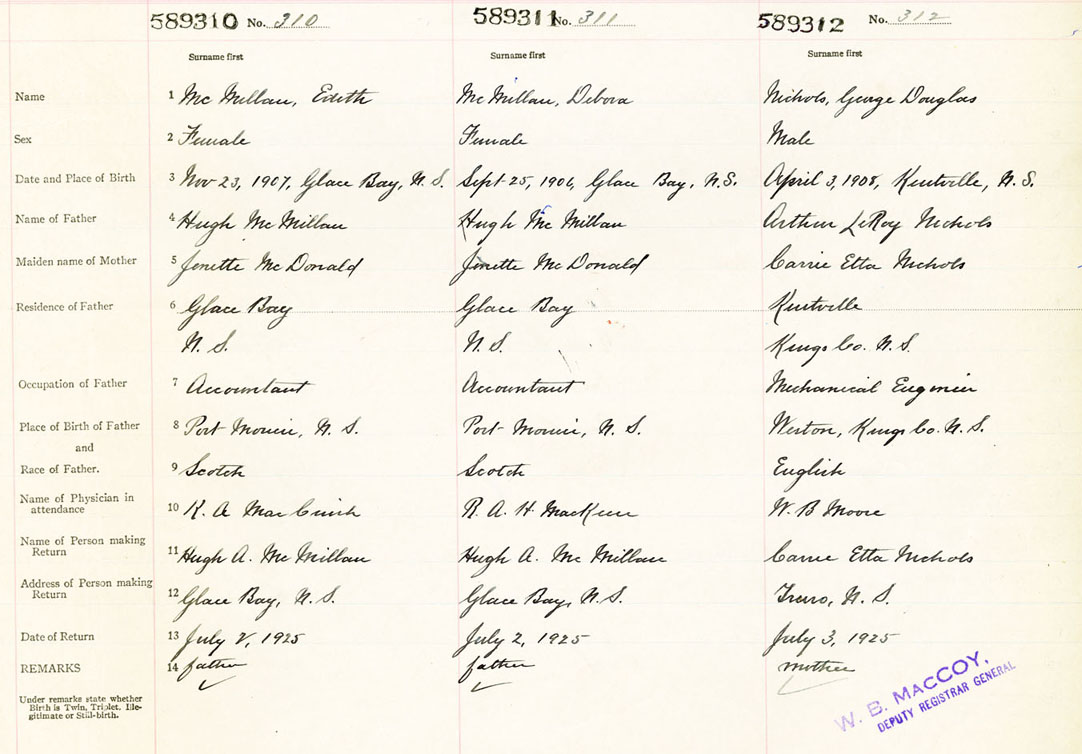 589310 No. 310 589311 No. 311 589312 No. 312
Surname first Surname first Surname first
Name 1 Mc Millan, Edith Mc Millan, Debora Nichols, George Douglas
Sex 2 Female Female Male
Date and Place of Birth 3 Nov 23, 1907, Glace Bay, N.S. Sept 25, 1906, Glace Bay, N.S. April 3, 1908, Kentville, N.S.
Name of Father 4 Hugh Mc Millan Hugh Mc Millan Arthur LeRoy Nichols
Maiden name of Mother 5 Jenette Mc Donald Jenette Mc Donald Carrie Etta Nichols
Residence of Father 6 Glace Bay Glace Bay Kentville
N. S. N. S. Kings Co. N. S.
Occupation of Father 7 Accountant Accountant Mechanical Engineer
Place of Birth of Father 8 Port Morien, N. S. Port Morien, N. S. Weston, Kings Co. N. S.
and
Race of Father. 9 Scotch Scotch English
Name of Physician in
attendance 10 K. A. Mac R. A. H. MacKeen W. B Moore
Name of Person making
Return 11 Hugh A. Mc Millan Hugh A. Mc Millan Carrie Etta Nichols
Address of Person making
Return 12 Glace Bay, N. S. Glace Bay, N. S. Truro, N. S.
Date of Return 13 July 2, 1925 July 2, 1925 July 3, 1925
REMARKS 14 father father mother
Under remarks state whether
Birth is Twin, Triplet, Ille-
gitimate or Still-birth.
W. B. MACCOY,
DEPUTY REGISTRAR GENERAL